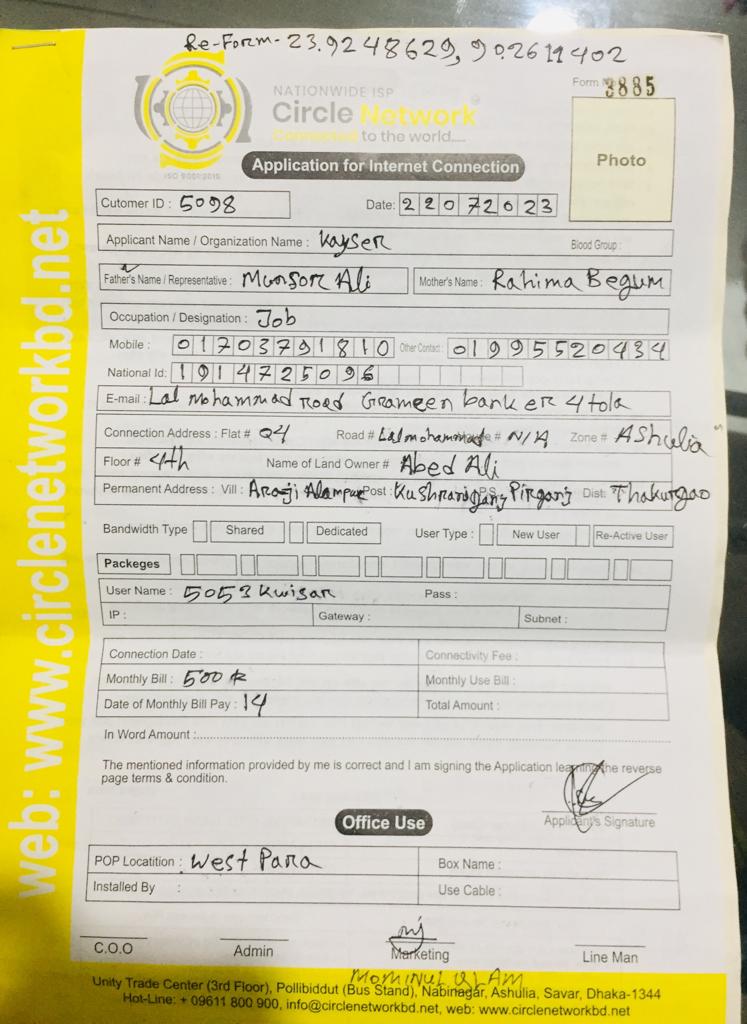 Re-Form-23.9248629, 90.2611402
NATIONWIDE ISP
Circle Network
Connected to the world.....
ISO 9001:2015
Form 3885
Photo
Application for Internet Connection
Cutomer ID : 5098
Date: 22072023
Applicant Name / Organization Name : Kayser Blood Group :
Father's Name / Representative : Munsor Ali Mother's Name : Rahima Begum
Occupation / Designation : Job
Mobile : 01703791810 Other Contact : 01995520434
National Id: 1914725096
E-mail : Lal mohammad Road Grameen bank er 4 tola
Connection Address : Flat # Q4 Road # Lalmohammad # N/A Zone # AShulia
Floor # 4th Name of Land Owner # Abed Ali
Permanent Address : Vill : Araji Alampur Post : Kushranigonj P.S Pirganj Dist: Thakurgao
Bandwidth Type Shared Dedicated User Type : New User Re-Active User
Packeges
User Name : 5053 Kwisar Pass :
IP : Gateway : Subnet :
Connection Date : Connectivity Fee :
Monthly Bill : 500 Monthly Use Bill :
Date of Monthly Bill Pay : 14 Total Amount :
In Word Amount :
The mentioned information provided by me is correct and I am signing the Application learning the reverse
page terms & condition.
Applicant's Signature
Office Use
POP Locatition : West Para Box Name :
Installed By : Use Cable :
C.O.O Admin Marketing Line Man
MOMINUL ISLAM
Unity Trade Center (3rd Floor), Pollibiddut (Bus Stand), Nabinagar, Ashulia, Savar, Dhaka-1344
Hot-Line: + 09611 800 900, info@circlenetworkbd.net, web: www.circlenetworkbd.net
web: www.circlenetworkbd.net